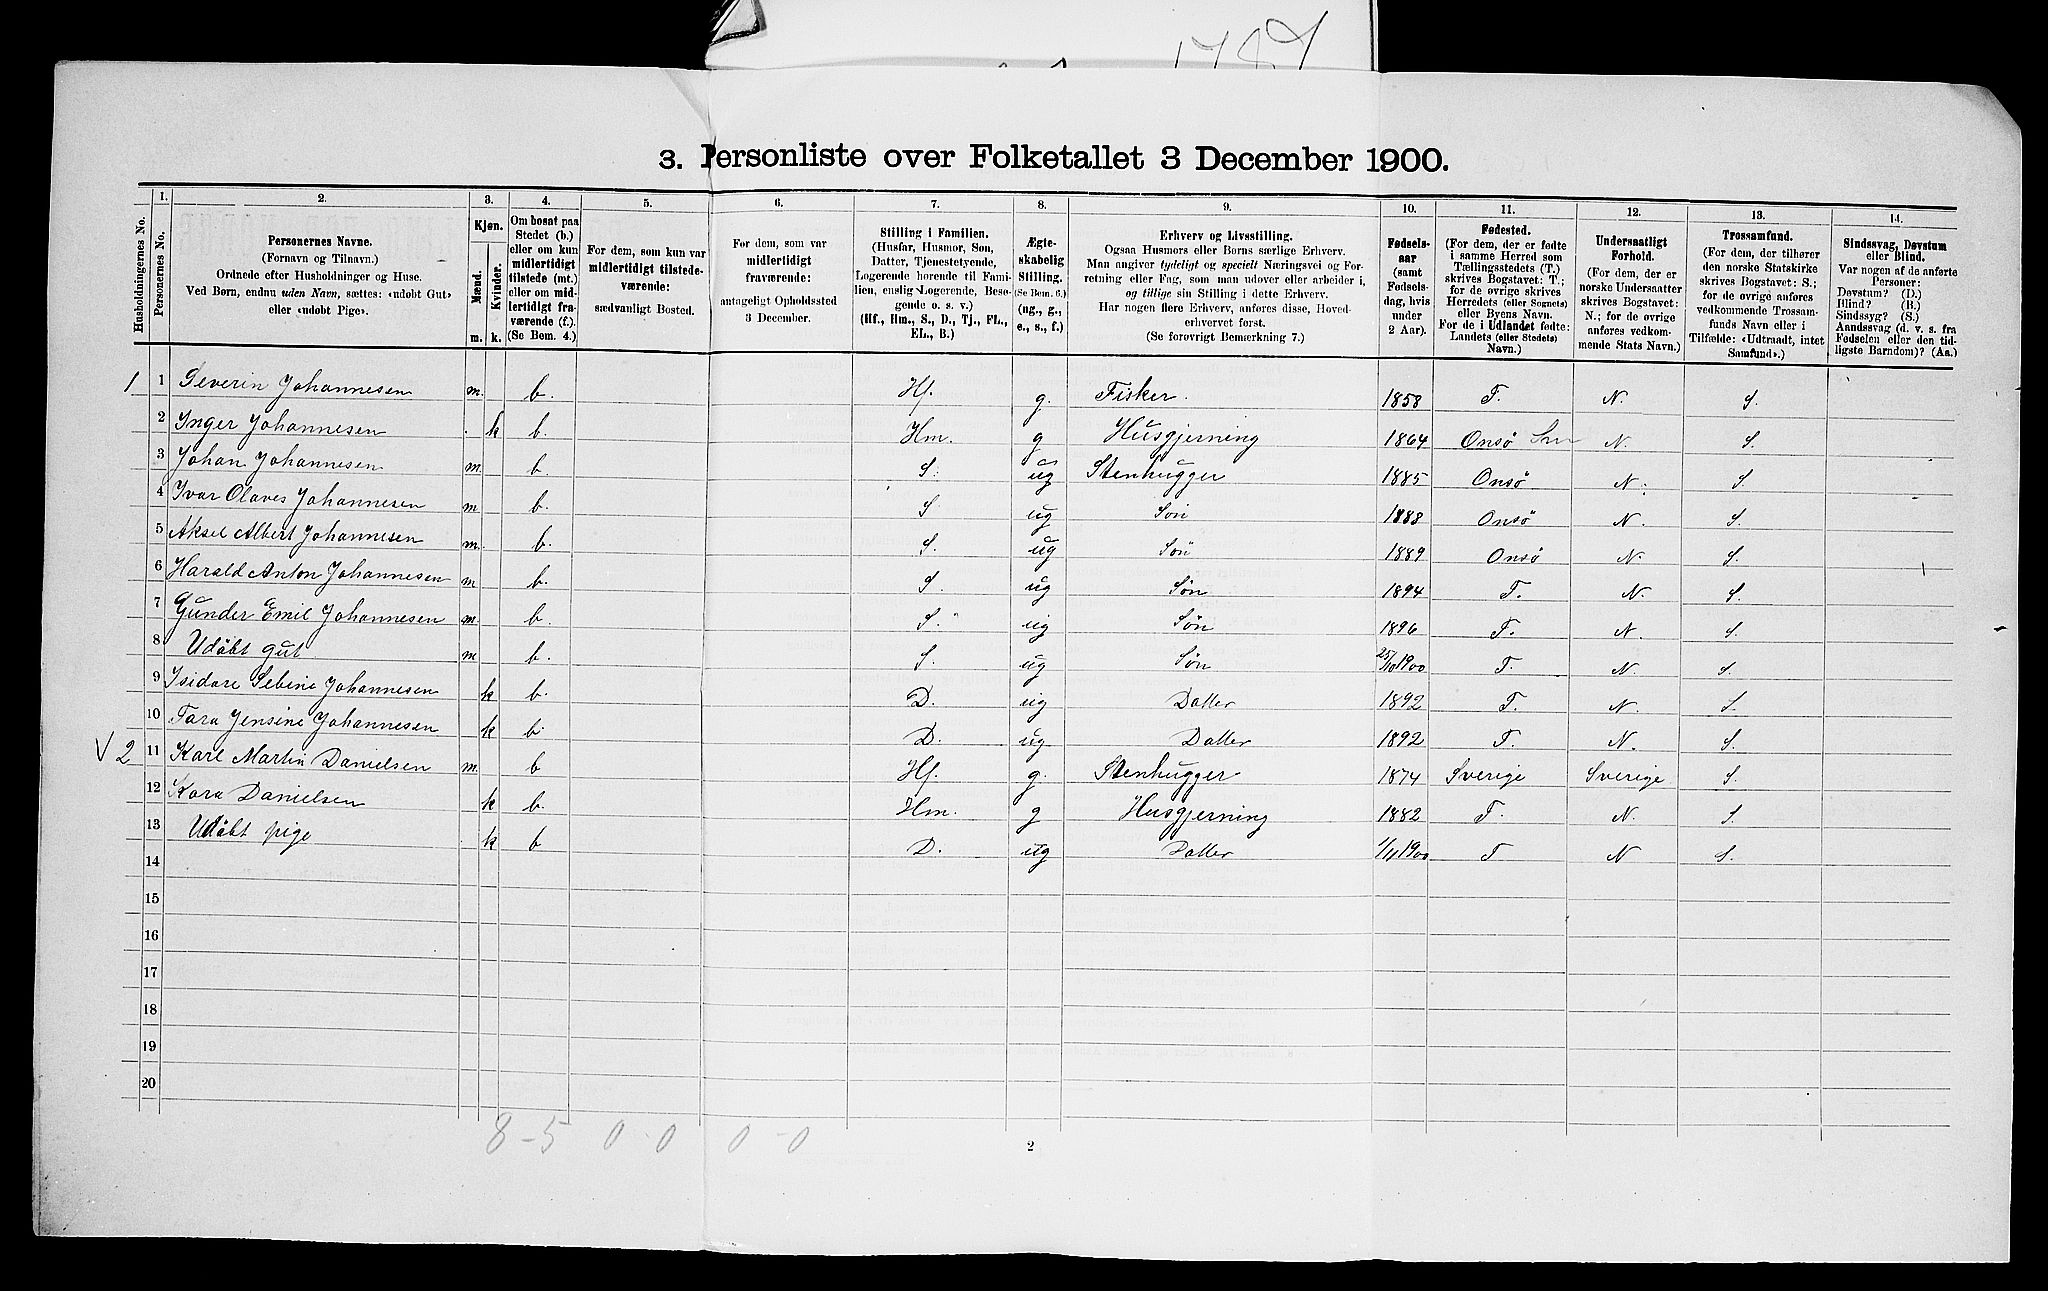 1787
3. Personliste over Folketallet 3 December 1900.
Husholdningernes No.
1. Personernes No.
2. Personernes Navne.
(Fornavn og Tilnavn.)
Ordnede efter Husholdninger og Huse.
Ved Børn, endnu uden Navn, sættes: «udøbt Gut»
eller «udøbt Pige».
3. Kjøn.
Mænd. Kvinder.
m. k.
4. Om bosat paa
Stedet (b.)
eller om kun
midlertidigt
tilstede (mt.)
eller om mid-
lertidigt fra-
værende (f.)
(Se Bem. 4.)
5. For dem, som kun var
midlertidigt tilstede-
værende:
sædvanligt Bosted.
6. For dem, som var
midlertidigt
fraværende:
antageligt Opholdssted
3 December.
7. Stilling i Familien.
(Husfar, Husmor, Søn,
Datter, Tjenestetyende,
Logerende hørende til Fami-
lien, enslig Logerende, Besø-
gende o. s. v.)
(Hf., Hm., S., D., Tj., FL.,
EL., B.)
8. Ægte-
skabelig
Stilling.
(Se Bem. 6.)
(ug., g.,
e., s., f.)
9. Erhverv og Livsstilling.
Ogsaa Husmors eller Børns særlige Erhverv.
Man angiver tydeligt og specielt Næringsvei og For-
retning eller Fag, som man udøver eller arbeider i,
og tillige sin Stilling i dette Erhverv.
Har nogen flere Erhverv, anføres disse, Hoved-
erhvervet først.
(Se forøvrigt Bemærkning 7.)
10. Fødsels-
aar
(samt
Fødsels-
dag, hvis
under
2 Aar).
11. Fødested.
(For dem, der er fødte
i samme Herred som
Tællingsstedets (T.)
skrives Bogstavet: T.;
for de øvrige skrives
Herredets (eller Sognets)
eller Byens Navn.
For de i Udlandet fødte:
Landets (eller Stedets)
Navn.)
12. Undersaatligt
Forhold.
(For dem, der er
norske Undersaatter
skrives Bogstavet:
N.; for de øvrige
anføres vedkom-
mende Stats Navn.)
13. Trossamfund.
(For dem, der tilhører
den norske Statskirke
skrives Bogstavet: S.;
for de øvrige anføres
vedkommende Trossam-
funds Navn eller i
Tilfælde: «Udtraadt, intet
Samfund».)
14. Sindssvag, Døvstum
eller Blind.
Var nogen af de anførte
Personer:
Døvstum? (D.)
Blind? (B.)
Sindssyg? (S.)
Aandssvag (d. v. s. fra
Fødselen eller den tid-
ligste Barndom)? (Aa.)
1 1 Severin Johannesen m. b. Hf. g. Fisker. 1858 T. N. S.
2 Inger Johannesen k b. Hm. g Husgjerning 1864 Onsö N. S.
3 Johan Johannesen m. b. S. ug Stenhugger 1885 Onsö N. S.
4 Ivar Olaves Johannesen m. b. S ug Sön 1888 Onsö N. S.
5 Aksel Albert Johannesen m. b. S. ug Sön 1889 Onsö N. S.
6 Harald Anton Johannesen m. b. S. ug Sön 1894 T. N. S.
7 Gunder Emil Johannesen m. b. S. ug Sön 1896 T. N. S.
8 Udöbt gut m b. S. ug Sön 25/10 1900 T. N. S.
9 Isidore Sebine Johannesen k b. D. ug Datter 1892 T. N. S.
10 Tara Jensine Johannesen k b. D. ug Datter 1892 T. N. S.
V 2 11 Karl Martin Danielsen m. b Hf. g. Stenhugger 1874 Sverige Sverige S.
12 Kara Danielsen k b. Hm. g Husgjerning 1882 T. N. S.
13 Udöbt pige k b D. ug Datter 1/11 1900 T N S.
14
15
16
17
18
19
20
8-5 0-0 0-0
2